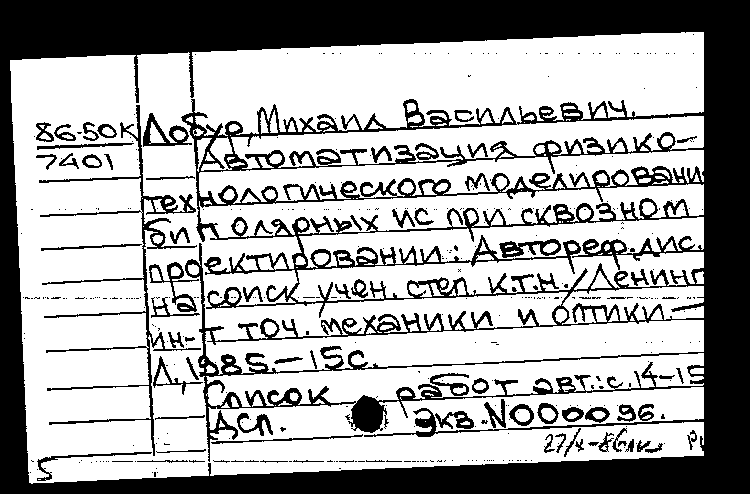 86-50К Лобур, Михаил Васильевич.
7401 Автоматизация физико-
технологического моделировани
биполярных ис при сквозном
проектировании: Автореф. дис.
на соиск. учен. степ. к.т.н. / Ленинг
ин-т точ. механики и оптики. —
Л., 1985. — 15с.
Список работ авт.: с. 14-15
ДСП. Экз. N000096.
5